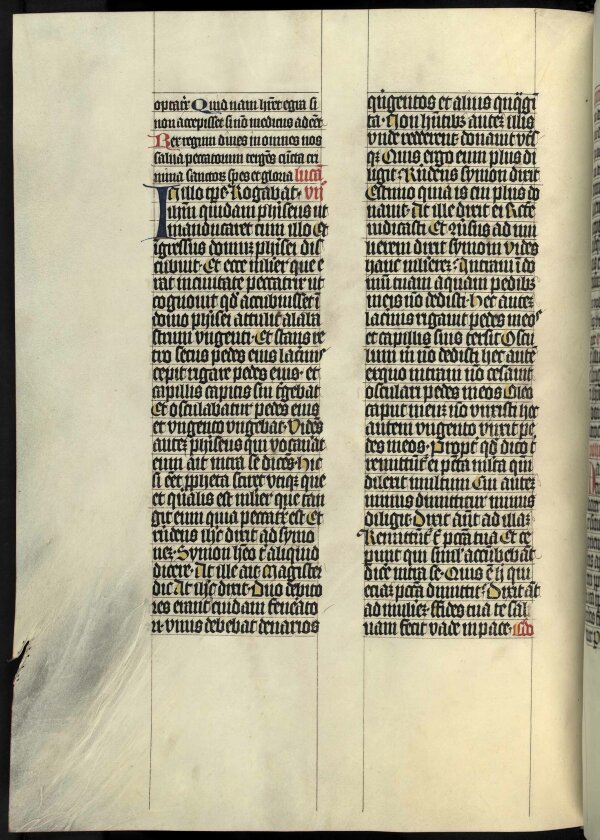 optat̄. Quid nam h̄ret egra si
non accepisset si nō medicus adēēt
Rex regum diues in omnes nos
salua peccatorum tergēs cūcta cri
mina sanctoꝝ spes et gloria lucā
In illo tp̄e. Rogabat. vij
Ihm̄ quidam phiseus ut
manducaret cum illo Et
īgressus domum phisei dis
cubuit. Et ecce mulier que e
rat in ciuitate peccatrix ut
cognouit qd̄ accubuisset ī
domo phisei attulit alaba
strum vngenti. Et stans re
tro secus pedes eius lacrimis
cepit rigare pedes eius. et
capillis capitis sui t̄gebat
Et osculabatur pedes eius
et vngento vngebat. Vidēs
autez phiseus qui vocauat
eum ait intra se dicēs. Hic
si eēt ppheta sciret vtiqꝫ que
et qualis est mulier que tan
git eum quia peccat̄x est Et
rn̄dens ihc̄ dixit ad symo
nez. Symon hēo t̄ aliquid
dicere. At ille ait Magister
dic At ihc̄ dixit. Duo debito
res erant cuidam fenerato
ri. vnus debebat denarios
qn̄gentos et alius qnq̄gī
ta. Non hn̄tibꝫ autez illis
vnde redderent. donauit vtsqꝫ
Quis ergo eum plus di
ligit. Rn̄dens symon dixit
Estimo quia is cui plus do
nauit. At ille dixit ei Recte
iudicasti Et rn̄sus ad mu
lierem dixit symoni Vides
hanc mulierez. Intraui ī do
mū tuam aquam pedibꝫ
meis nō dedisti. Hec autez
lacrimis rigauit pedes meos
et capillis suis tersit Oscu
lum m̄ nō dedisti hec autē
ex quo intraui nō cessauit
osculari pedes meos Oleo
caput meuꝫ nō vnxisti hec
autem vngento vnxit pe
des meos. Propt̄ qd̄ dico t̄
remittūt̄ ei pctā multa qm̄
dilexit multum Cui autez
minus dimittitur minus
diligit. Dixit aūt ad illaꝫ
Remittūt̄ t̄ pctā tua Et ce
punt qui simul accūbebāt
dicē intra se. Quis ē h̄ qui
eciaꝫ pctā dimittit. Dixit aūt
ad mulierē. fides tua te sal
uam fecit vade in pace.